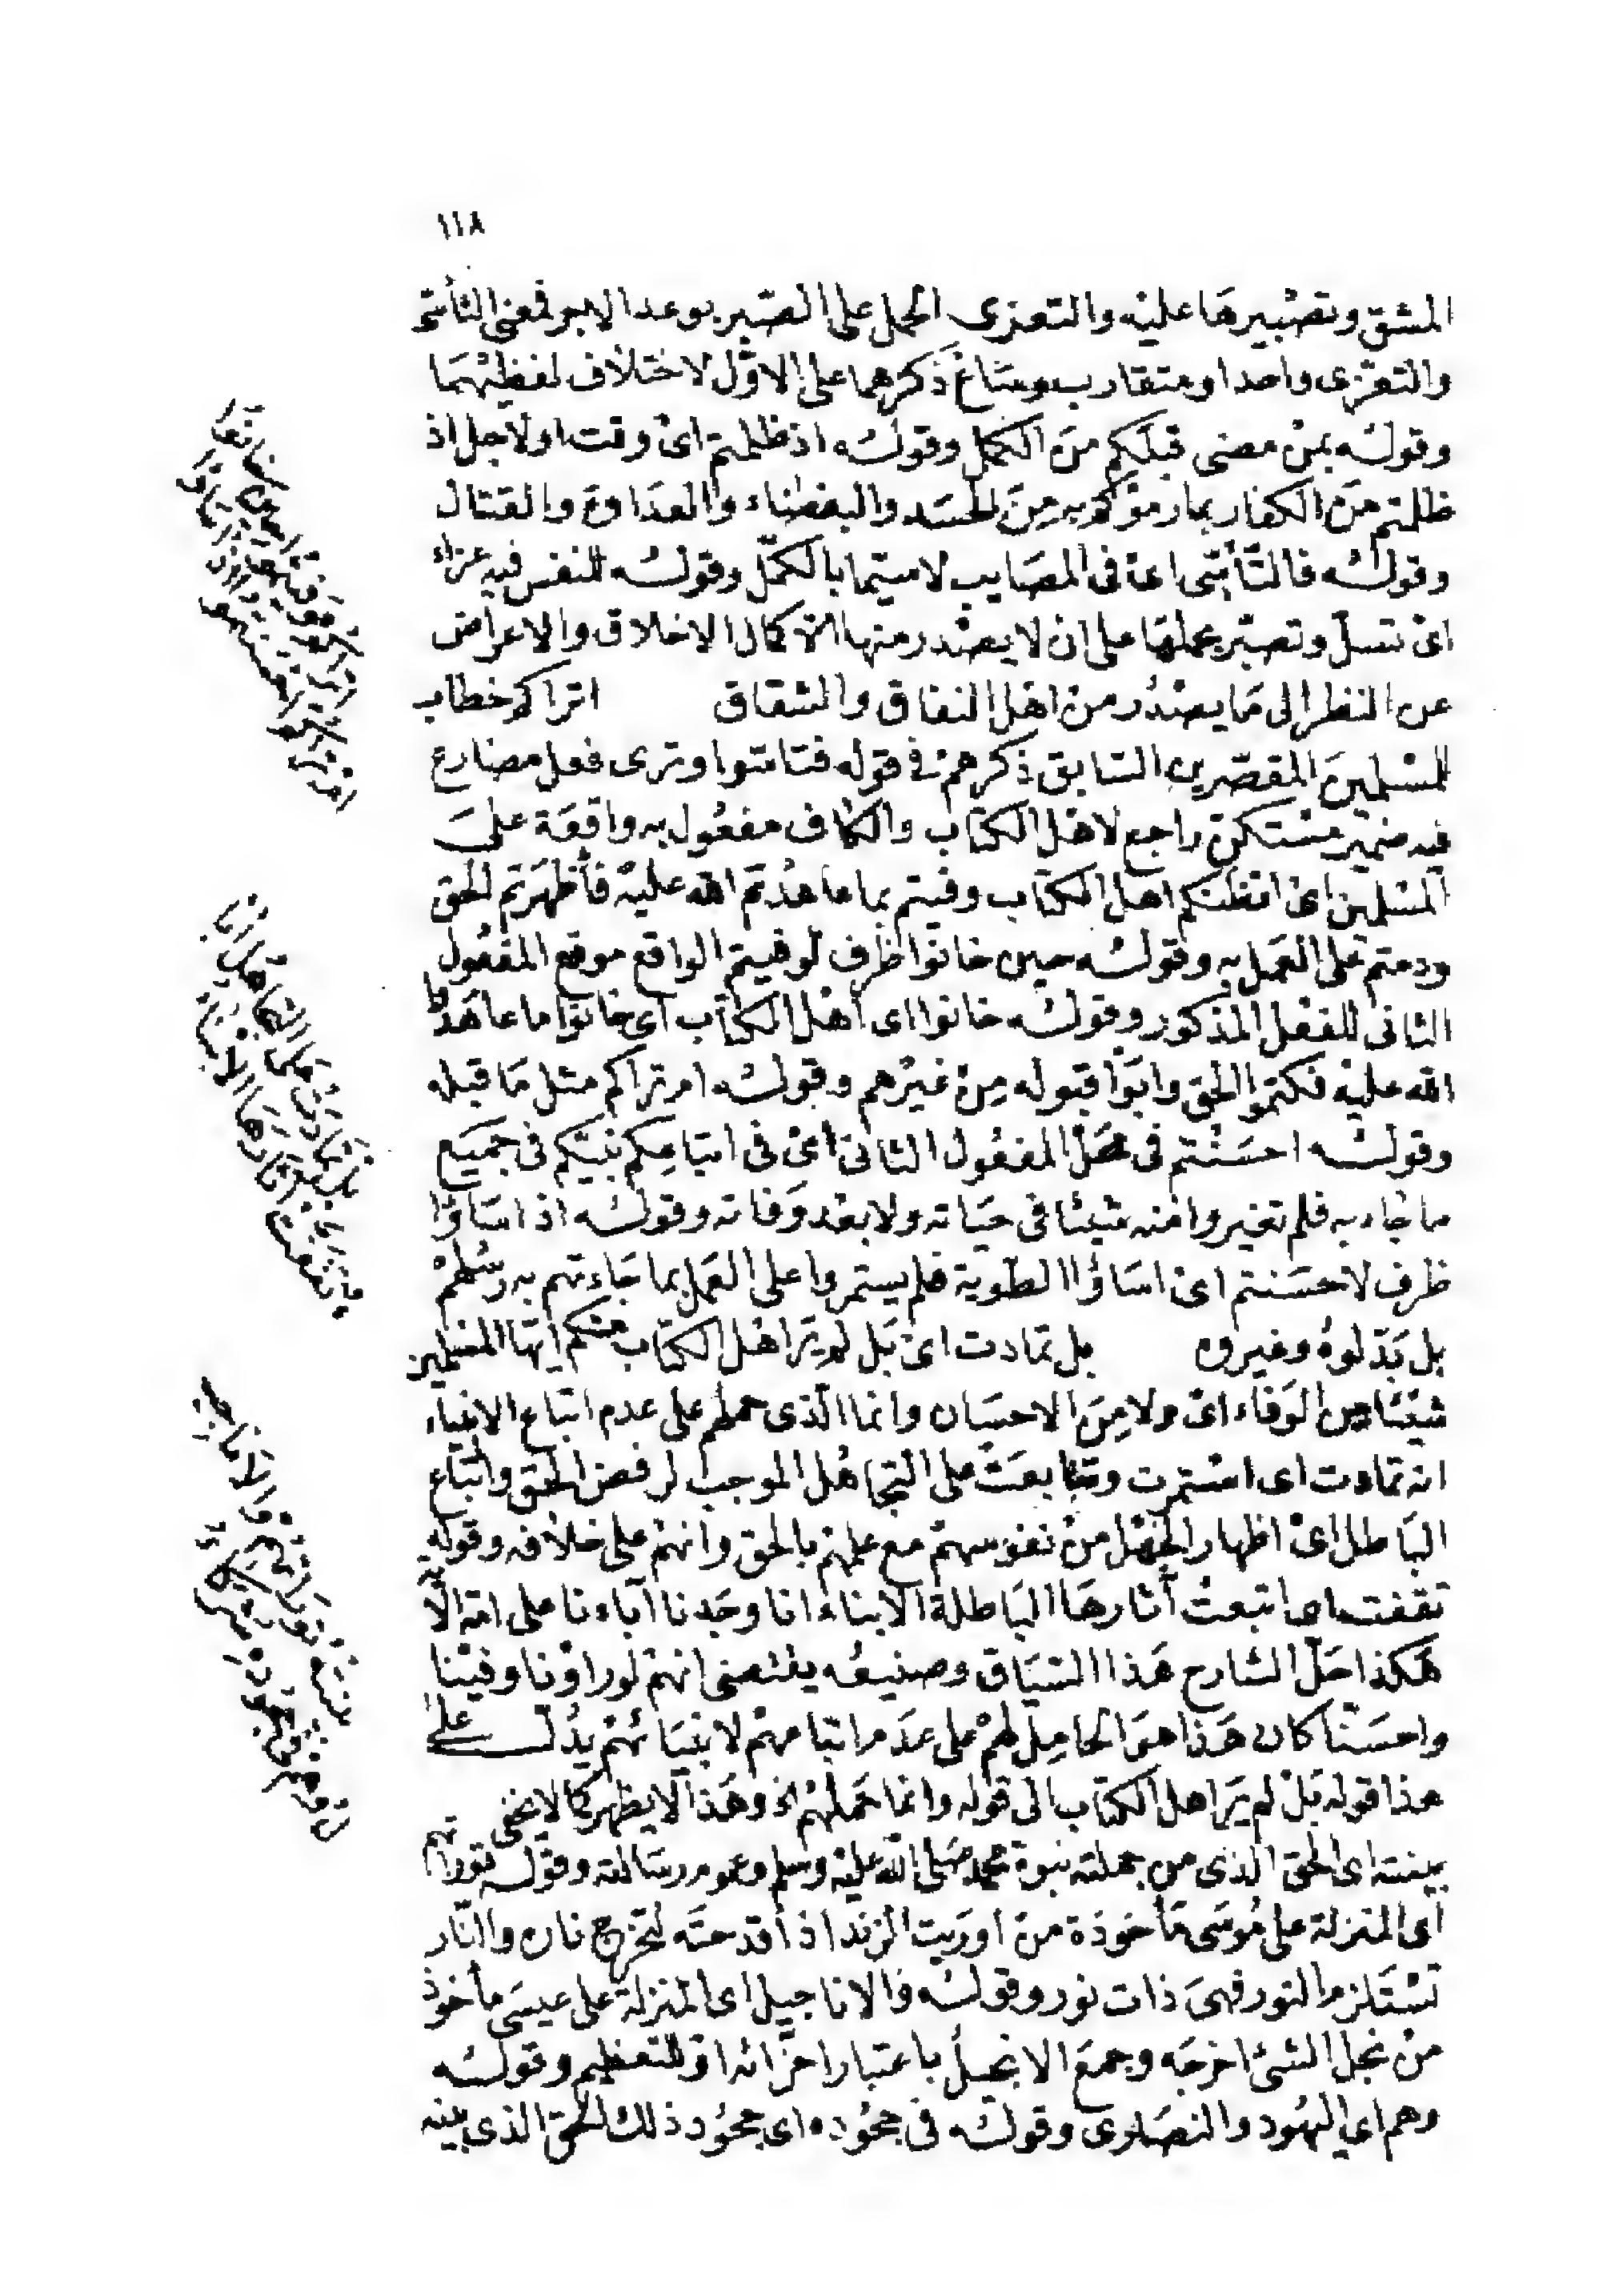 ١١٨
المشق وتصبيرها عليه والتعزى الحمل على الصبر بوعد الاجر فمعنى التأسى
والتعزى واحد او متقارب وساغ ذكرهما على الاول لاختلاف لفظيهما
وقوله بمن مضى قبلكم من الكمل وقوله اذ ظلمتم اى وقت او لاجل اذ
ظلمتم من الكفار بما رموكم به من الحسد والبغضاء والعداوة والقتال
وقوله فالتأسى اى فى المصايب لا سيما بالكمل وقوله للنفس فيه عزاء
اى تسل وتصبر بحملها على ان لا يصدر منها الا كمال الاخلاق والاعراض
عن النظر الى ما يصدر من اهل النفاق والشقاق اتراكم خطاب
للمسلمين المقصرين السابق ذكرهم فى قوله فتاسوا وترى فعل مضارع
فيه ضمير مستكن راجع لاهل الكتاب والكاف مفعول به واقعة على
المسلمين اى اتظنكم اهل الكتاب وفيتم بما عاهدتم الله عليه فأظهرتم الحق
ودمتم على العمل به وقوله حين خانوا ظرف لوفيتم الواقع موقع المفعول
الثانى للفعل المذكور وقوله خانوا اى اهل الكتاب اى خانوا ما عاهدوا
الله عليه فكتموا الحق وابوا قبوله من غيرهم وقوله ام تراكم مثل ما قبله
وقوله احسنتم فى محل المفعول الثانى اى فى اتباعكم نبيكم فى جميع
ما جاء به فلم تغيروا منه شيئا فى حياته ولا بعد وفاته وقوله اذ اساؤا
ظرف لاحسنتم اى اساؤا الطوية فلم يستمروا على العمل بما جاءتهم به رسلهم
بل بدلوه وغيروه بل تمادت اى بل لم ير اهل الكتاب منكم ايها المسلمين
شيئا من الوفاء اى ولا من الاحسان وانما الذى حملهم على عدم اتباع الانبياء
انه تمادت اى استمرت وتتابعت على التجاهل الموجب لرفض الحق واتباع
الباطل اى اظهار الجهل من نفوسهم مع علمهم بالحق وانهم على خلافه وقوله
تقفت اى اتبعت آثارها الباطلة الابناء انا وجدنا آباءنا على امة الآ
هكذا حل الشارح هذا السياق وصنيعه يقتضى انهم لو راونا وفينا
واحسنا كان هذا هو الحامل لهم على عدم اتباعهم لانبيائهم يدل على
هذا قوله بل لم ير اهل الكتاب الى قوله وانما حملهم الخ وهذا لا يظهر كما لا يخفى
بينته اى الحق الذى من جملته نبوة محمد صلى الله عليه وسلم وعموم رسالته وقوله توراتهم
اى المنزلة على موسى مأخوذة من اوريت الزند اذ أقدحته لتخرج ناره والنار
تستلزم النور فهى ذات نور وقوله والاناجيل اى المنزلة على عيسى مأخوذ
من نجل الشئ اخرجه وجمع الانجيل باعتبار اجزائه او للتعظيم وقوله
وهم اى اليهود والنصارى وقوله فى جحوده اى جحود ذلك الحق الذى بينه
بل تمادت على التجاهل آباء
تقفت آثارها الابناء
بينته توراتهم والاناجيل
وهم فى جحوده شركاء